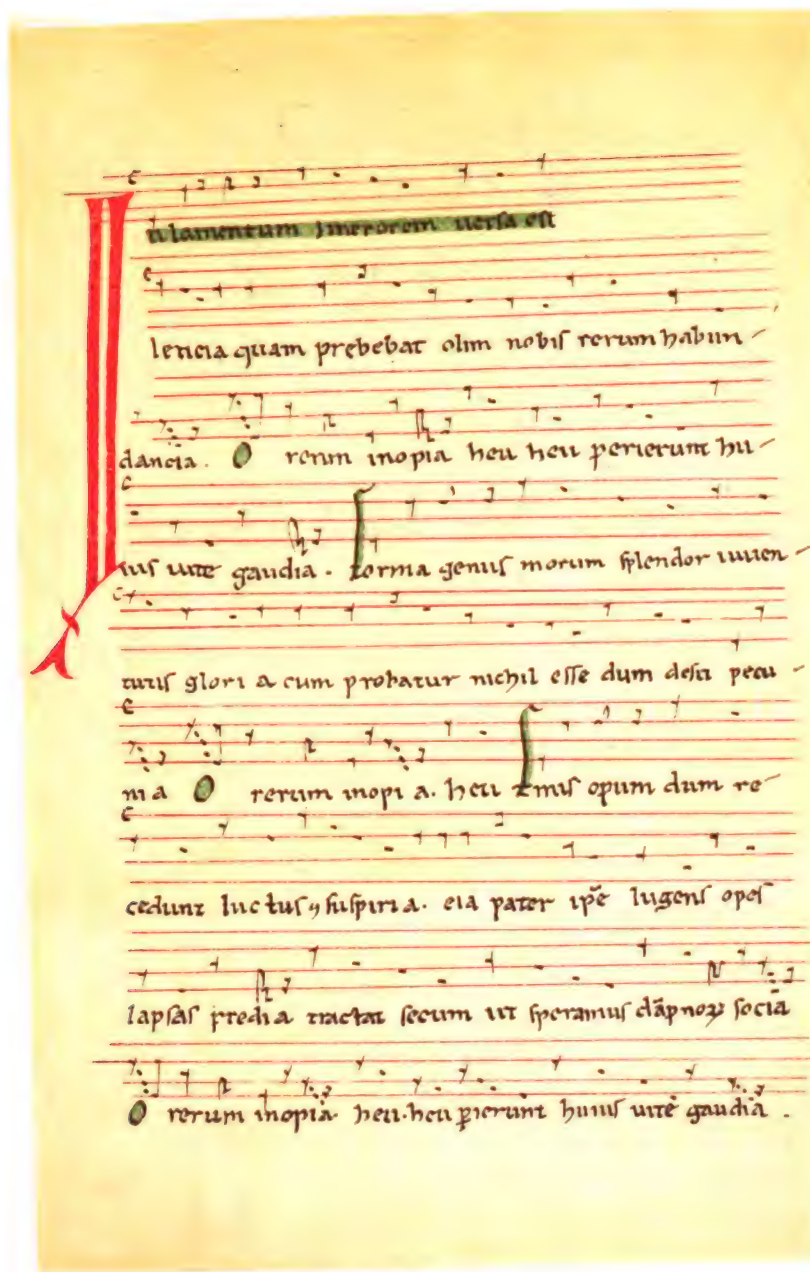 In lamentum ⁊ merorem uersa est
leticia quam prebebat olim nobis rerum habun-
dancia. O rerum inopia heu heu perierunt hu-
ius uite gaudia. Forma genus morum splendor iuuen-
tutis glori a cum probatur nichil esse dum desit pecu-
nia O rerum inopi a. heu Finis opum dum re-
cedunt luctus ⁊ suspiri a. eia pater ip̄e lugens opes
lapsas predi a tractat secum ut speramus dāpnoꝝ socia
O rerum inopia. heu. heu ꝑierunt huius uite gaudia.